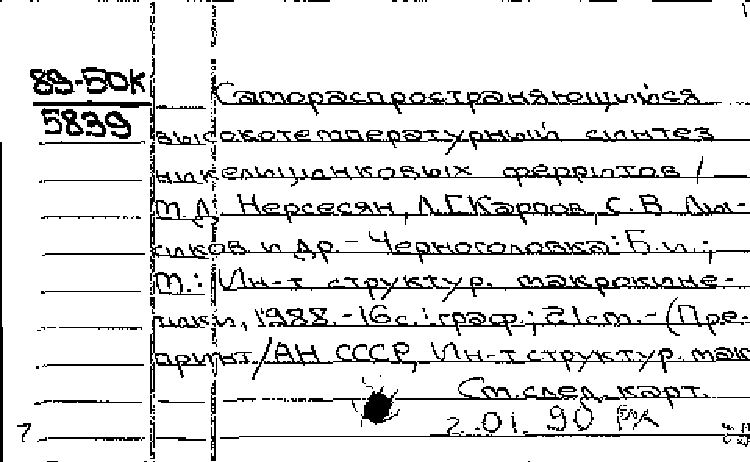 89-БОК
5839
Самораспространяющийся
высокотемпературный синтез
никельцинковых ферритов /
М.Д. Нерсесян, Л.Г. Карпов, С.В. Лыс-
сиков и др. - Черноголовка: Б.и.;
М.: Ин-т структур. макрокине-
тики, 1988. - 16 с.: граф.; 21 см. - (Пре-
принт / АН СССР, Ин-т структур. мак
См. след. карт.
2.01.90
7